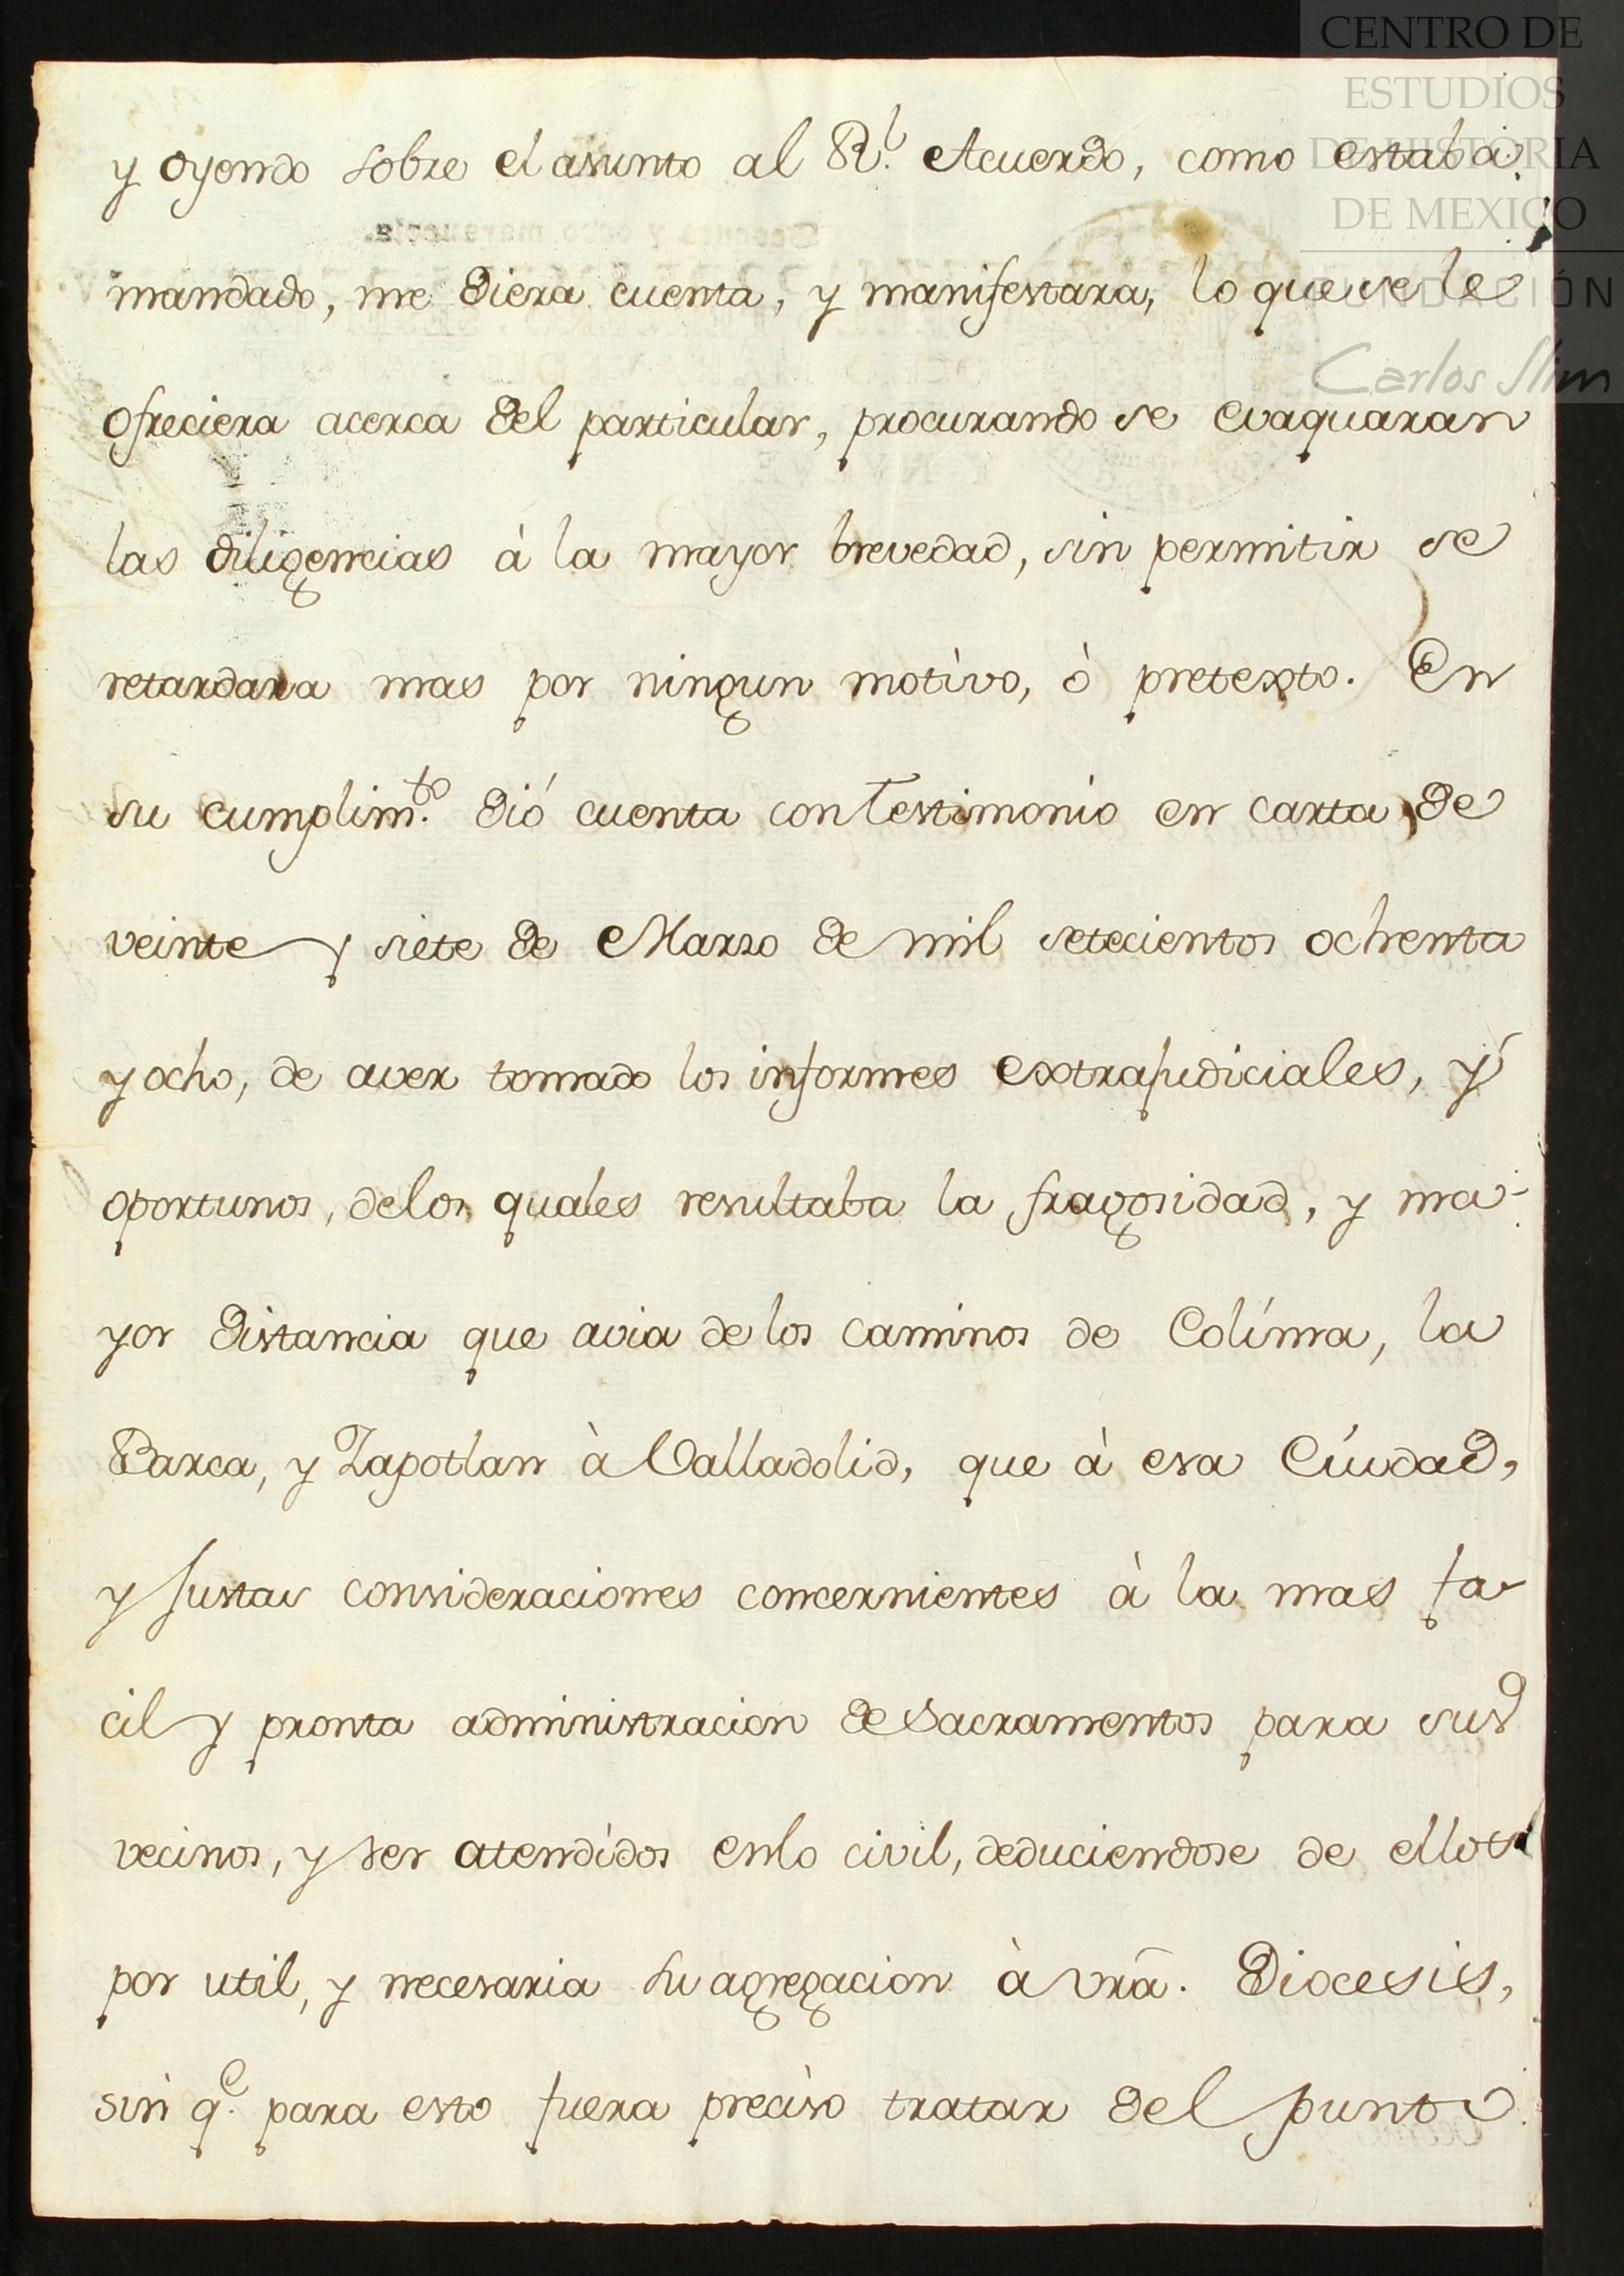 CENTRO DE
ESTUDIOS
DE HISTORIA
DE MEXICO
FUNDACIÓN
Carlos Slim
y oyendo sobre el asunto al Rl. Acuerdo, como estaba
mandado, me diera cuenta, y manifestara, lo que se le
ofreciera acerca del particular, procurando se evaquaran
las diligencias à la mayor brevedad, sin permitir se
retardara mas por ningun motivo, ò pretexto. En
su cumplimto. dió cuenta con Testimonio en carta de
veinte y siete de Marzo de mil setecientos ochenta
y ocho, de aver tomado los informes extrajudiciales, y
oportunos, delos quales resultaba la fragosidad, y ma-
yor distancia que avia de los caminos de Colíma, la
Barca, y Zapotlan à Valladolid, que à esa Ciudad,
y justas consideraciones concernientes à la mas fa-
cil y pronta administracion de Sacramentos para sus
vecinos, y ser atendidos enlo civil, deduciendose de ellos
por util, y necesaria su agregacion à vrã. Diocesis,
sin qe. para esto fuera preciso tratar del punto